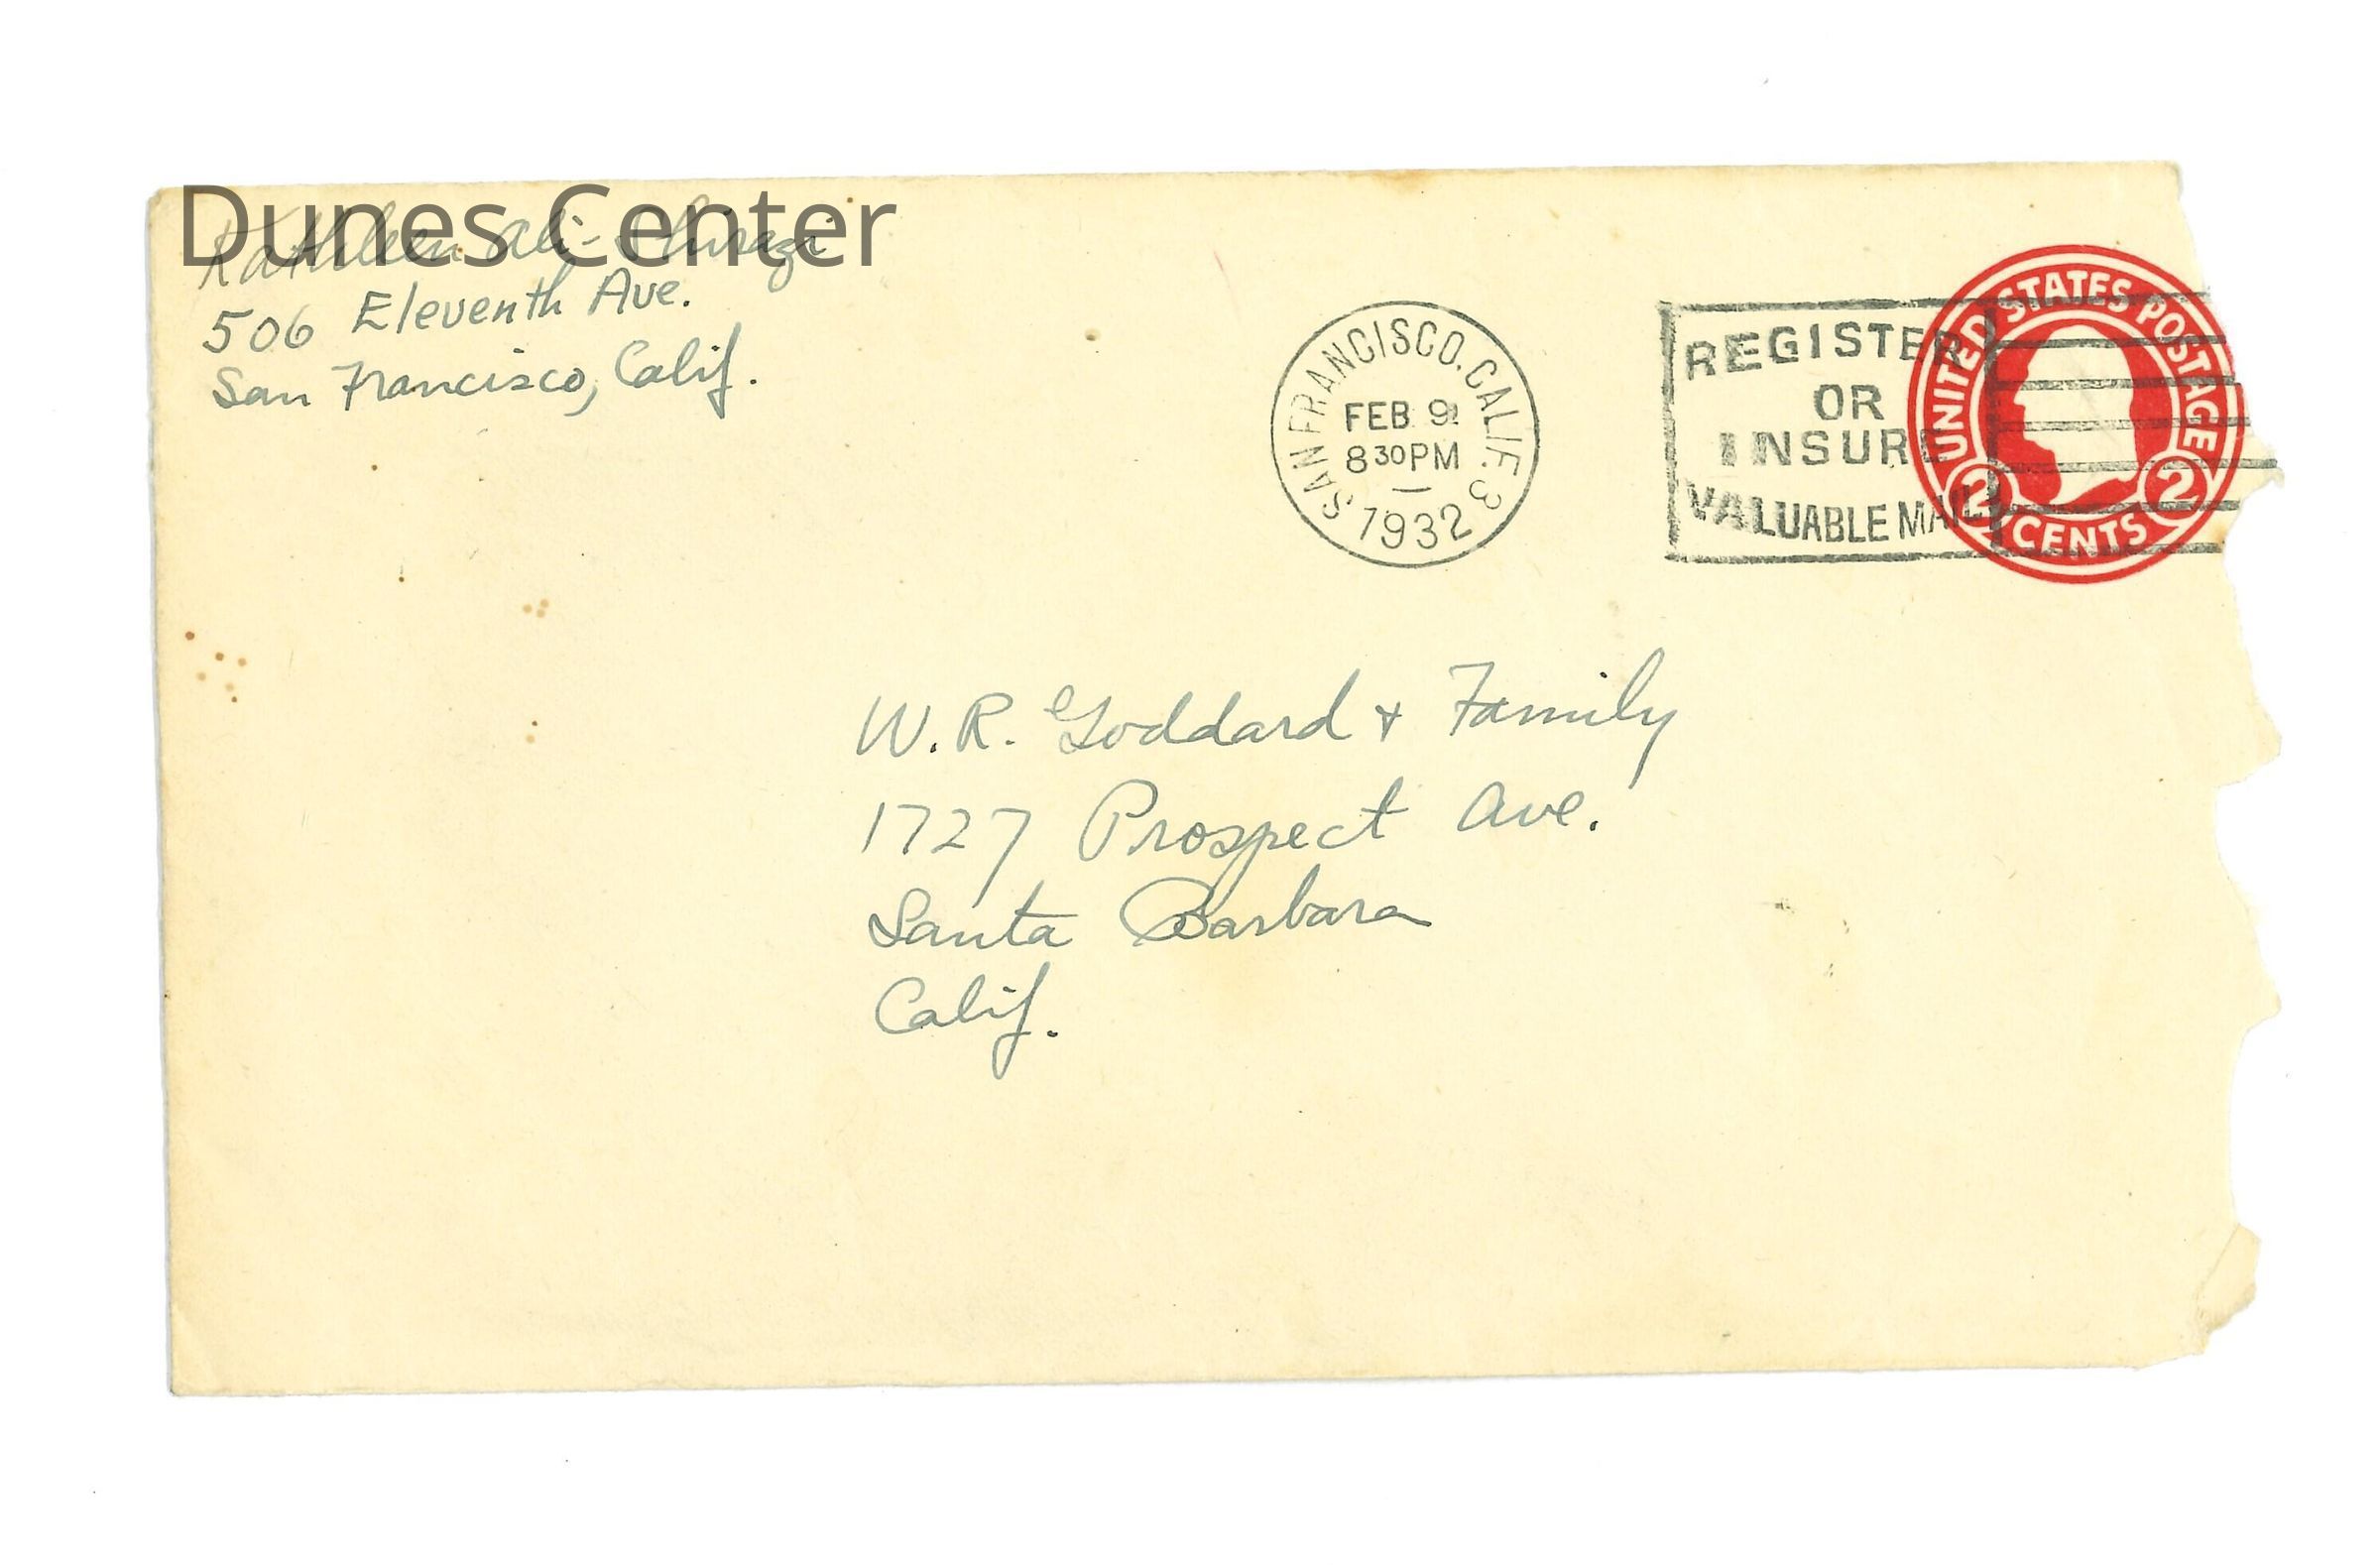 Dunes Center
Kathleen Ali-Shirazi
506 Eleventh Ave.
San Francisco, Calif.
SAN FRANCISCO. CALIF. 3
FEB 9
8 30 PM
1932
REGISTER
OR
INSURE
VALUABLE MAIL
UNITED STATES POSTAGE
2 CENTS 2
W. R. Goddard + Family
1727 Prospect Ave.
Santa Barbara
Calif.